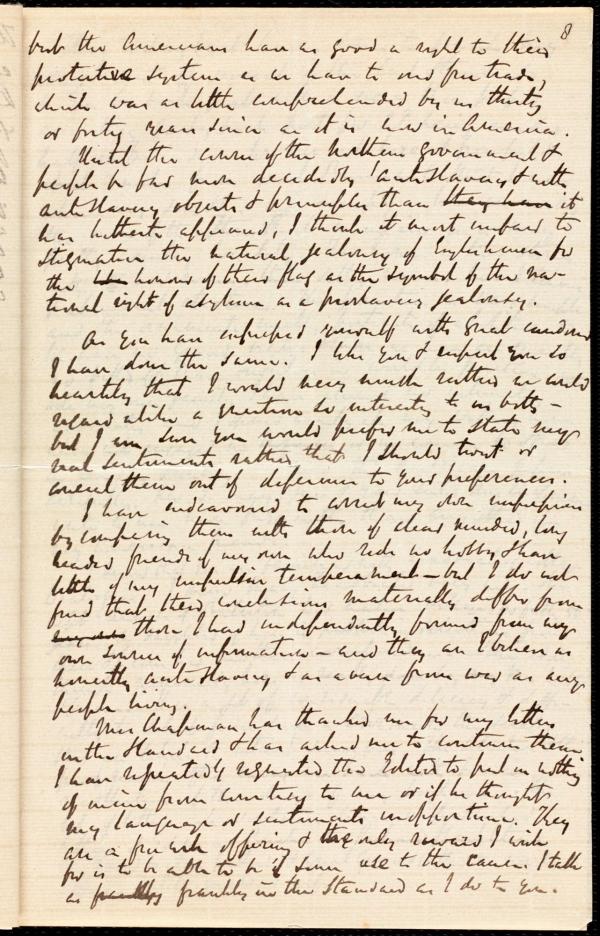 8
but the Americans have as good a right to their
protective system as we have to our free trade,
which was as little comprehended by us thirty
or forty years since as it is now in America.
Until the course of the Northern Government &
people be far more decidedly antislavery & with
antislavery objects & principles than they have it
has hitherto appeared, I think it most unfair to
stigmatise the natural jealousy of Englishmen for
the honour of their flag as the symbol of the na-
tional right of asylum as a proslavery jealousy.
As you have expressed yourself with great candour
I have done the same. I like you & respect you so
heartily that I would very much rather we could
regard alike a question so interesting to us both -
but I am sure you would prefer me to state my
real sentiments rather that I should twist or
conceal them out of deference to your preferences.
I have endeavoured to correct my own impressions
by comparing them with those of clear minded, long
headed friends of my own who ride no hobby & have
little of my impulsive temperament - but I do not
find that their conclusions materially differ from
those I had independently formed from my
own sources of information - and they are I believe as
honestly antislavery & as averse from war as any
people living.
Mrs Chapman has thanked me for my letters
in the Standard & has asked me to continue them.
I have repeatedly requested the Editor to put in nothing
of mine from courtesy to me or if he thought
my language or sentiments inopportune. They
are a free will offering & the only reward I wish
for is to be able to be of some use to the cause. I talk
as frankly in the Standard as I do to you.